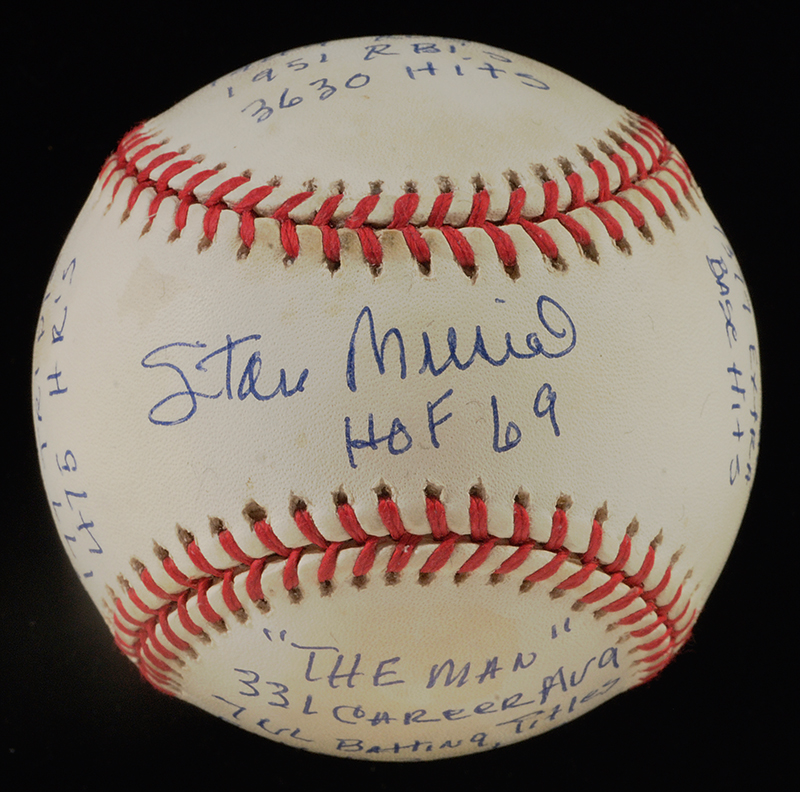 1951 RBI's
3630 Hits
Stan Musial
HOF 69
"THE MAN"
331 CAREER AVG
7 Batting Titles
475 HR'S
177
1377 EXTRA
BASE HITS